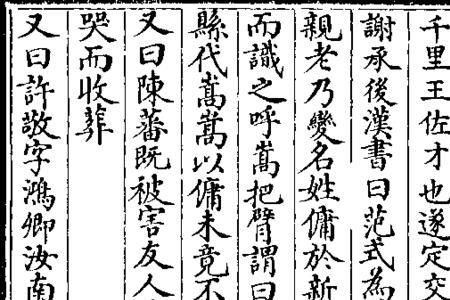 千里王佐才也遂定交
謝承後漢書曰范式為
親老乃變名姓傭於新
而識之呼嵩把臂謂曰
縣代嵩嵩以傭未竟不
又曰陳蕃既被害友人
哭而收葬
又曰許敬字鴻卿汝南